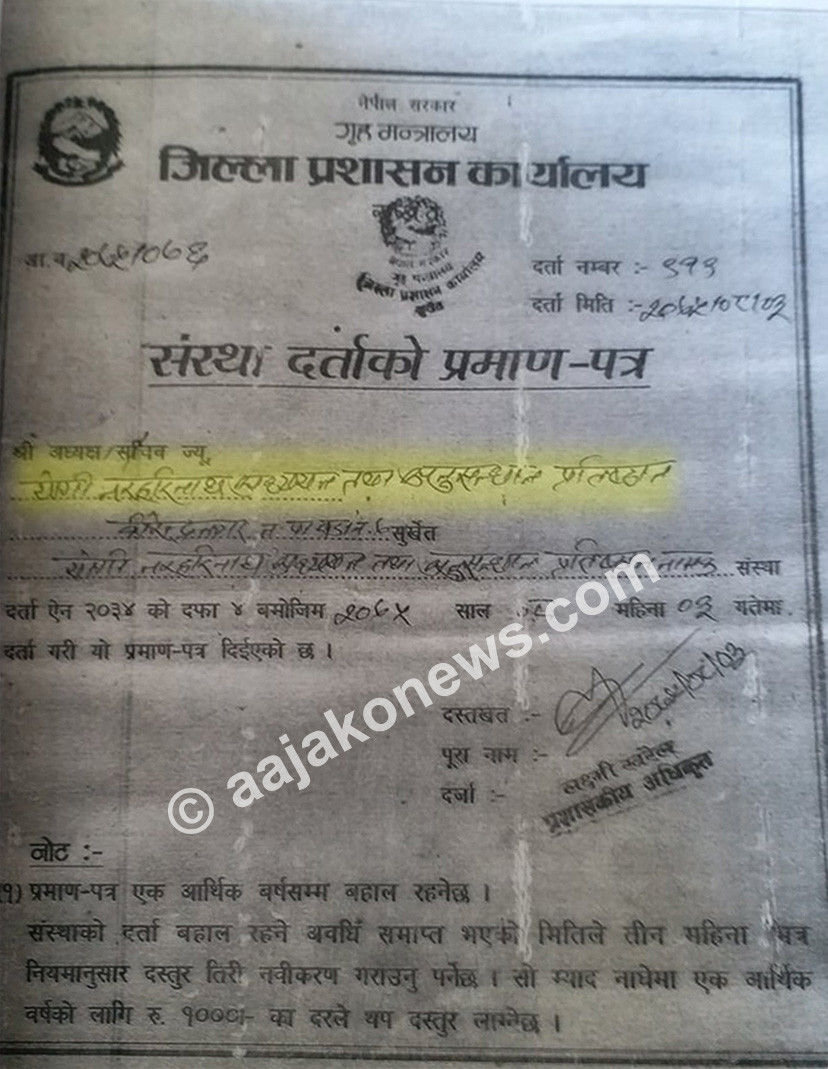 नेपाल सरकार
गृह मन्त्रालय
जिल्ला प्रशासन कार्यालय
नेपाल सरकार
गृह मन्त्रालय
जिल्ला प्रशासन कार्यालय
सुर्खेत
आ.व. २०६५/०६६
दर्ता नम्बर :- ९१९
दर्ता मिति :- २०६५/०८/०३
संस्था दर्ताको प्रमाण-पत्र
श्री अध्यक्ष/सचिव ज्यू,
योगी नरहरिनाथ अध्ययन तथा अनुसन्धान प्रतिष्ठान
सुर्खेत
योगी नरहरिनाथ अध्ययन तथा अनुसन्धान प्रतिष्ठान नामक संस्था
दर्ता ऐन २०३४ को दफा ४ बमोजिम २०६५ साल ०८ महिना ०३ गतेमा
दर्ता गरी यो प्रमाण-पत्र दिईएको छ ।
दस्तखत :- २०६५/०८/०३
पूरा नाम :- लक्ष्मी
दर्जा :- प्रशासकीय अधिकृत
© aajakonews.com
नोट :-
१) प्रमाण-पत्र एक आर्थिक वर्षसम्म बहाल रहनेछ ।
संस्थाको दर्ता बहाल रहने अवधि समाप्त भएको मितिले तीन महिना भित्र
नियमानुसार दस्तुर तिरी नवीकरण गराउनु पर्नेछ । सो म्याद नाघेमा एक आर्थिक
वर्षको लागि रु. १०००।- का दरले थप दस्तुर लाग्नेछ ।